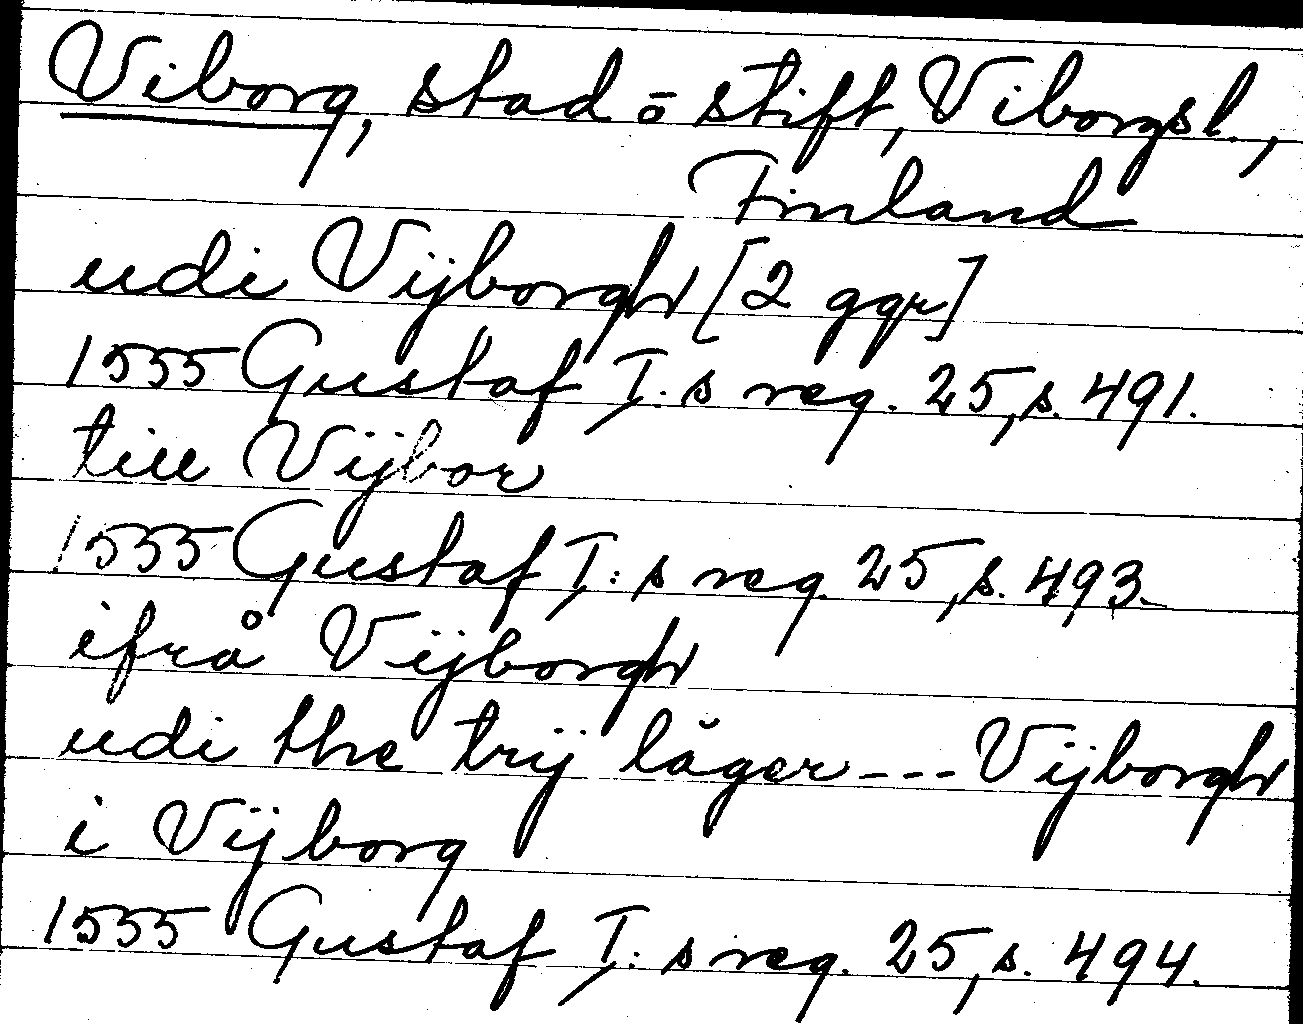 Viborg, stad o stift, Viborgsl.,
Finland
udi Vijborgh [2 ggr]
1555 Gustaf I:s reg. 25, s. 491.
till Vijbor
1555 Gustaf I:s reg. 25, s. 493.
ifrå Vijborgh
udi the trij läger --- Vijborgh
i Vijborg
1555 Gustaf I:s reg. 25, s. 494.